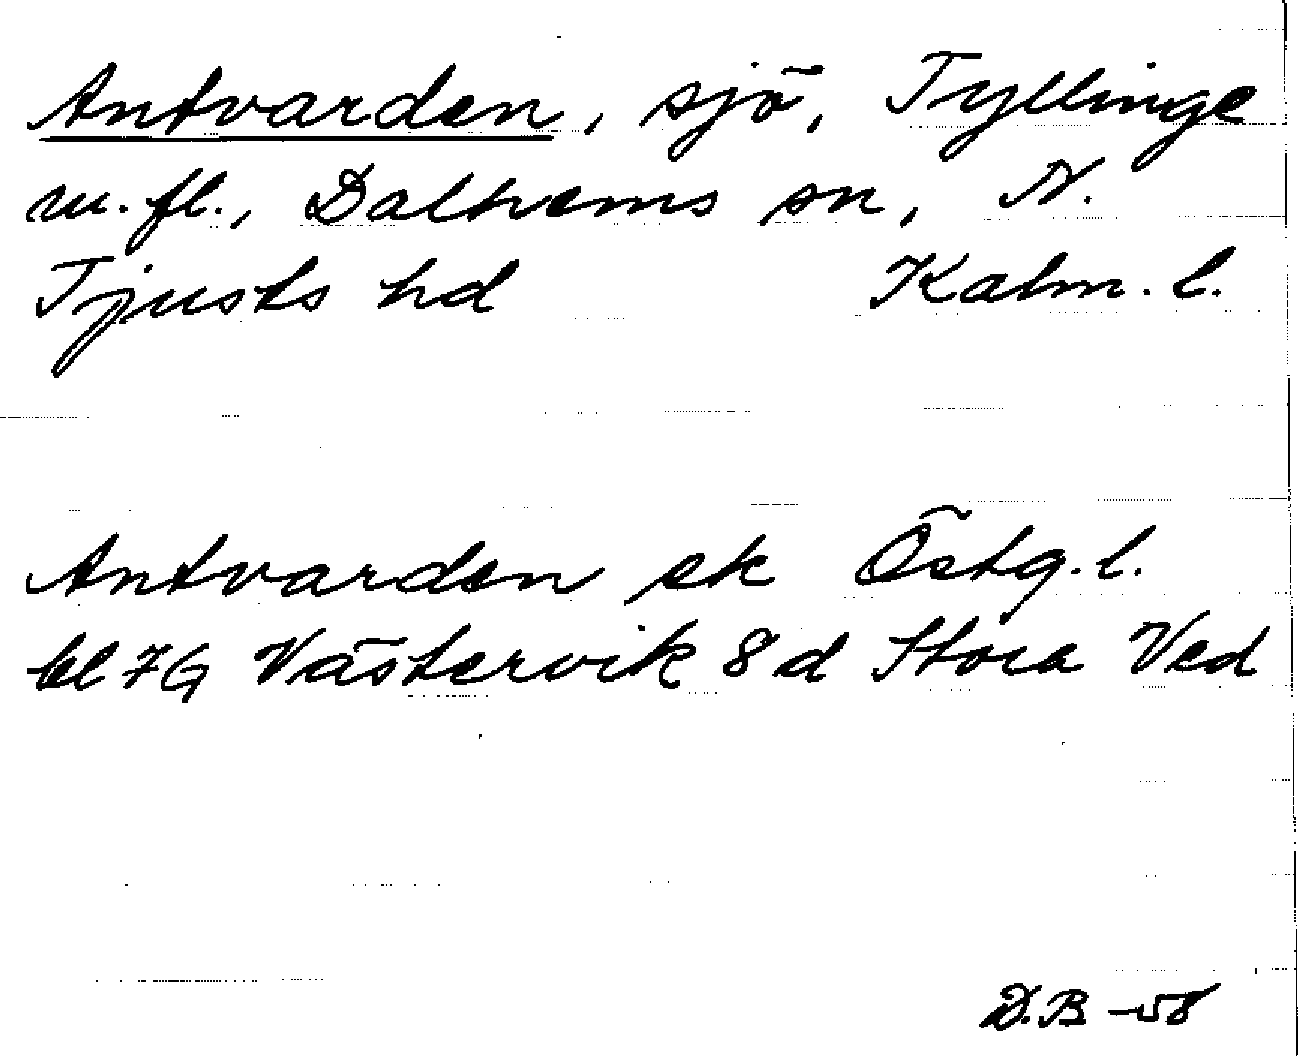 Antvarden, sjö, Tyllinge
m.fl., Dalhems sn, N.
Tjusts hd Kalm. l.
Antvarden ek Östg. l.
bl 7G Västervik 8d Stora Ved
D.B -58